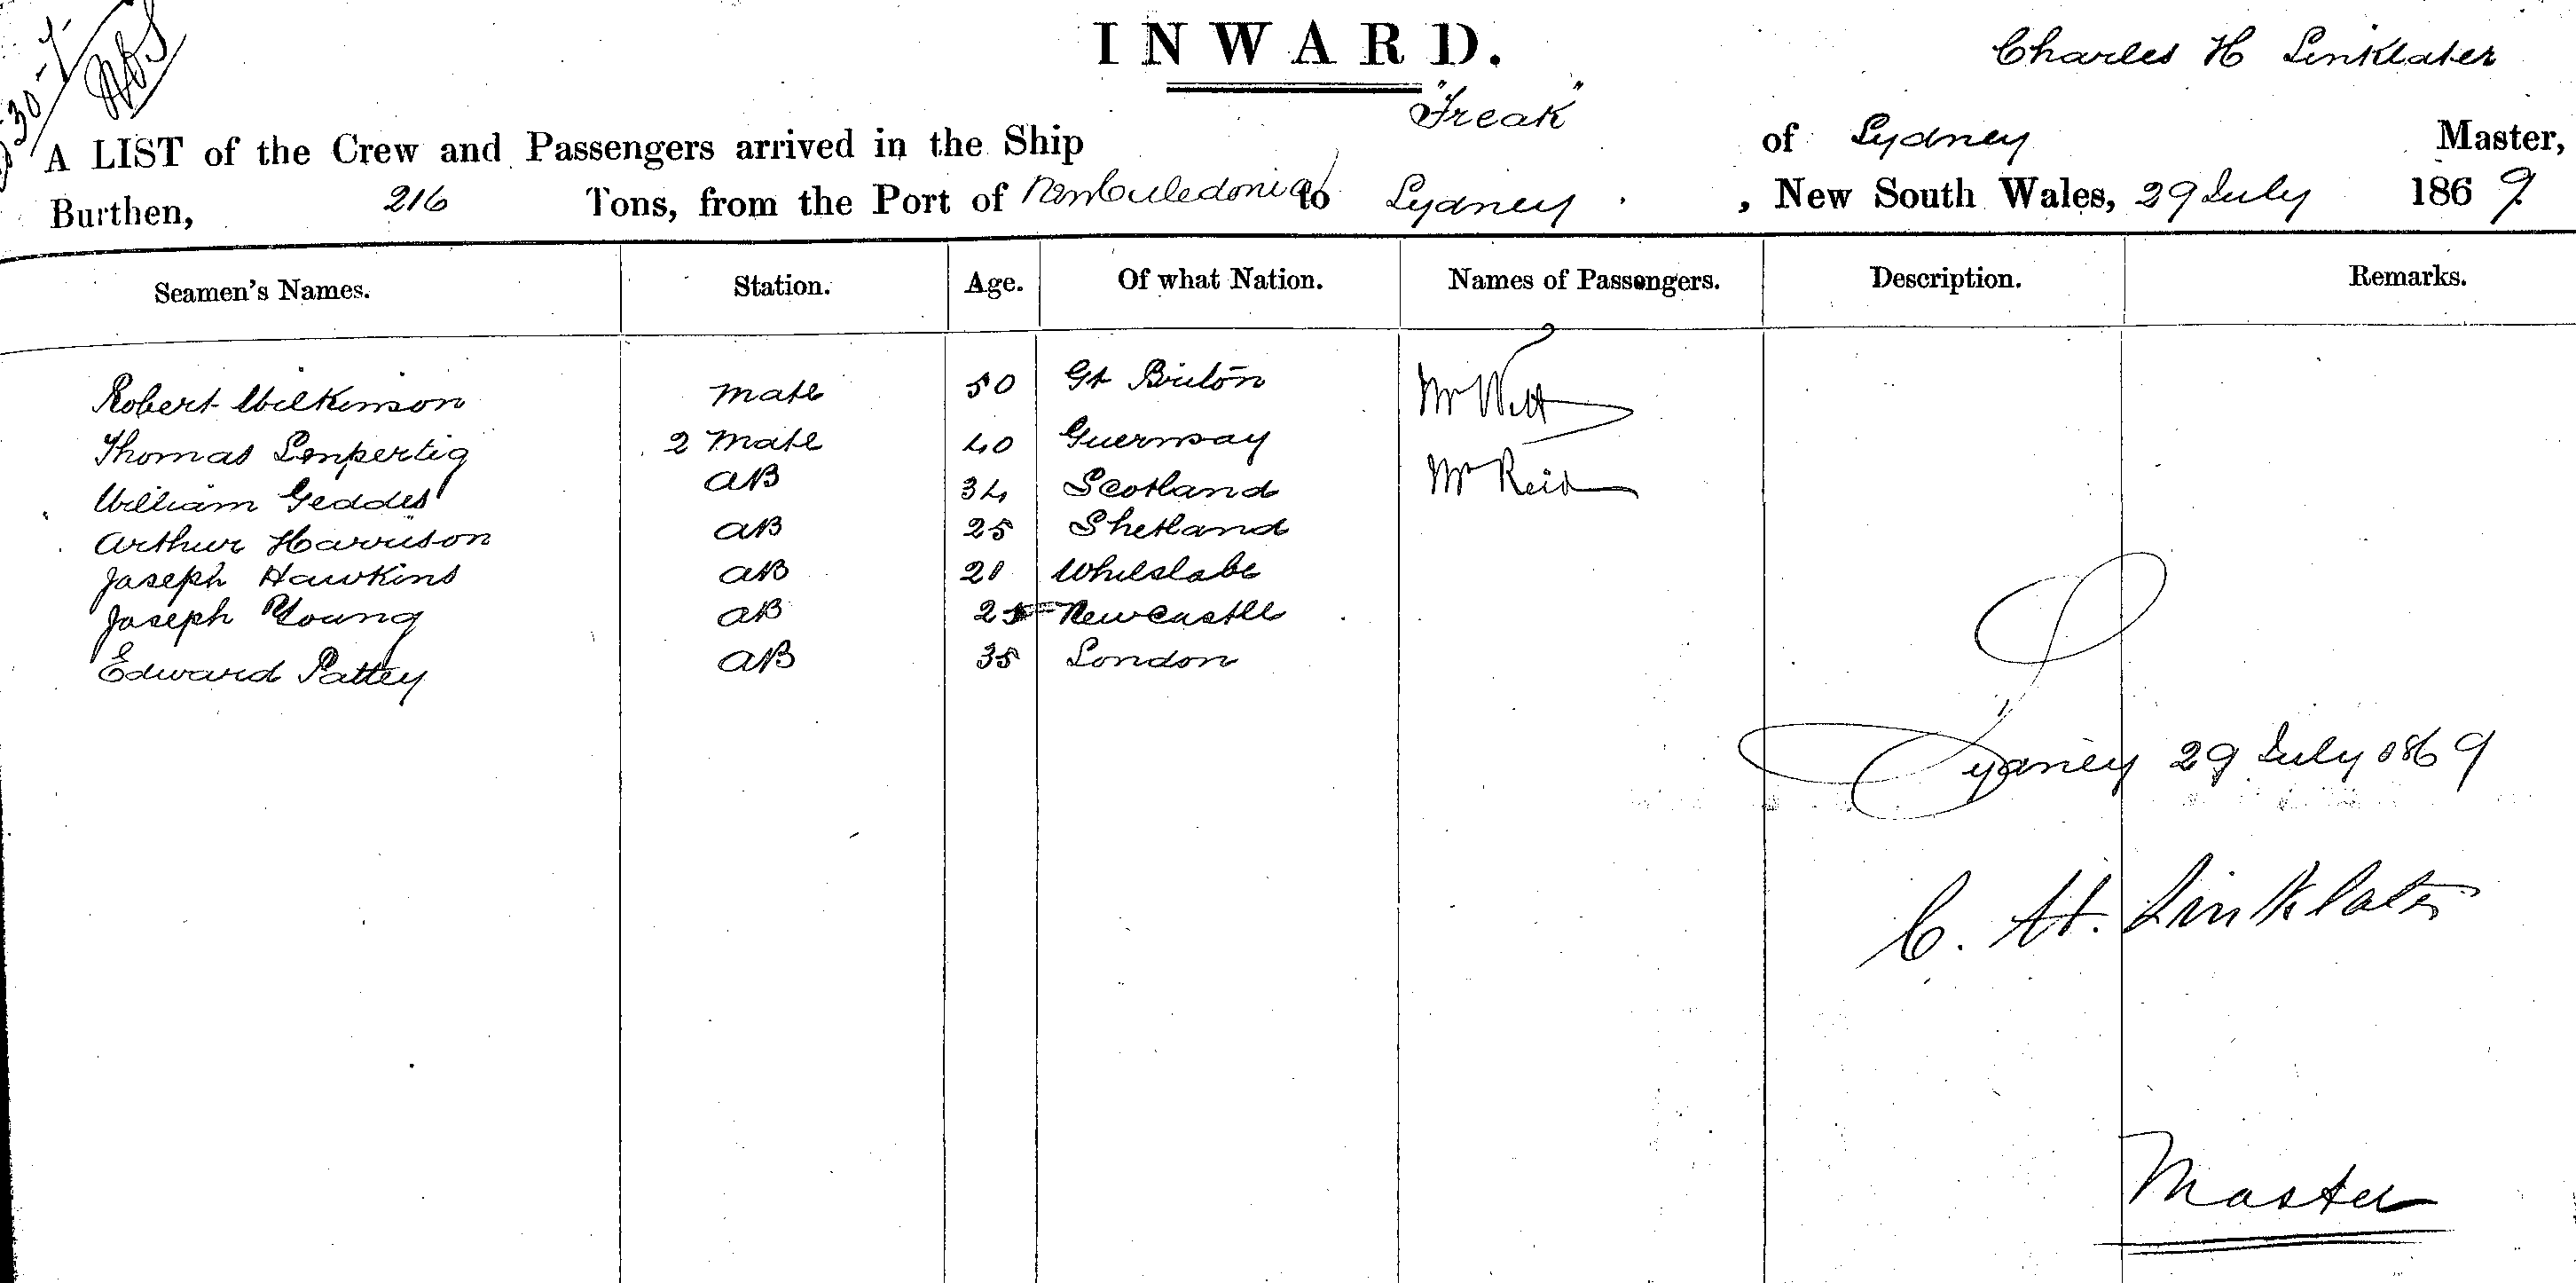 INWARD.
Charles H Linklater
"Freak"
A LIST of the Crew and Passengers arrived in the Ship of Sydney Master,
Burthen, 216 Tons, from the Port of New Caledonia to Sydney, New South Wales, 29 July 1869.
Seamen's Names. Station. Age. Of what Nation. Names of Passengers. Description. Remarks.
Robert Wilkinson Mate 50 Gt Briton Mr Witt
Thomas 2 Mate 40 Guernsay
William Geddes AB 34 Scotland Mr Reid
Arthur Harrison AB 25 Shetland
Joseph Hawkins AB 21 Whilslabe
Joseph Young AB Newcastle
Edward Pattey AB 35 London
Sydney 29 July 1869
C. H. Linklater
Master